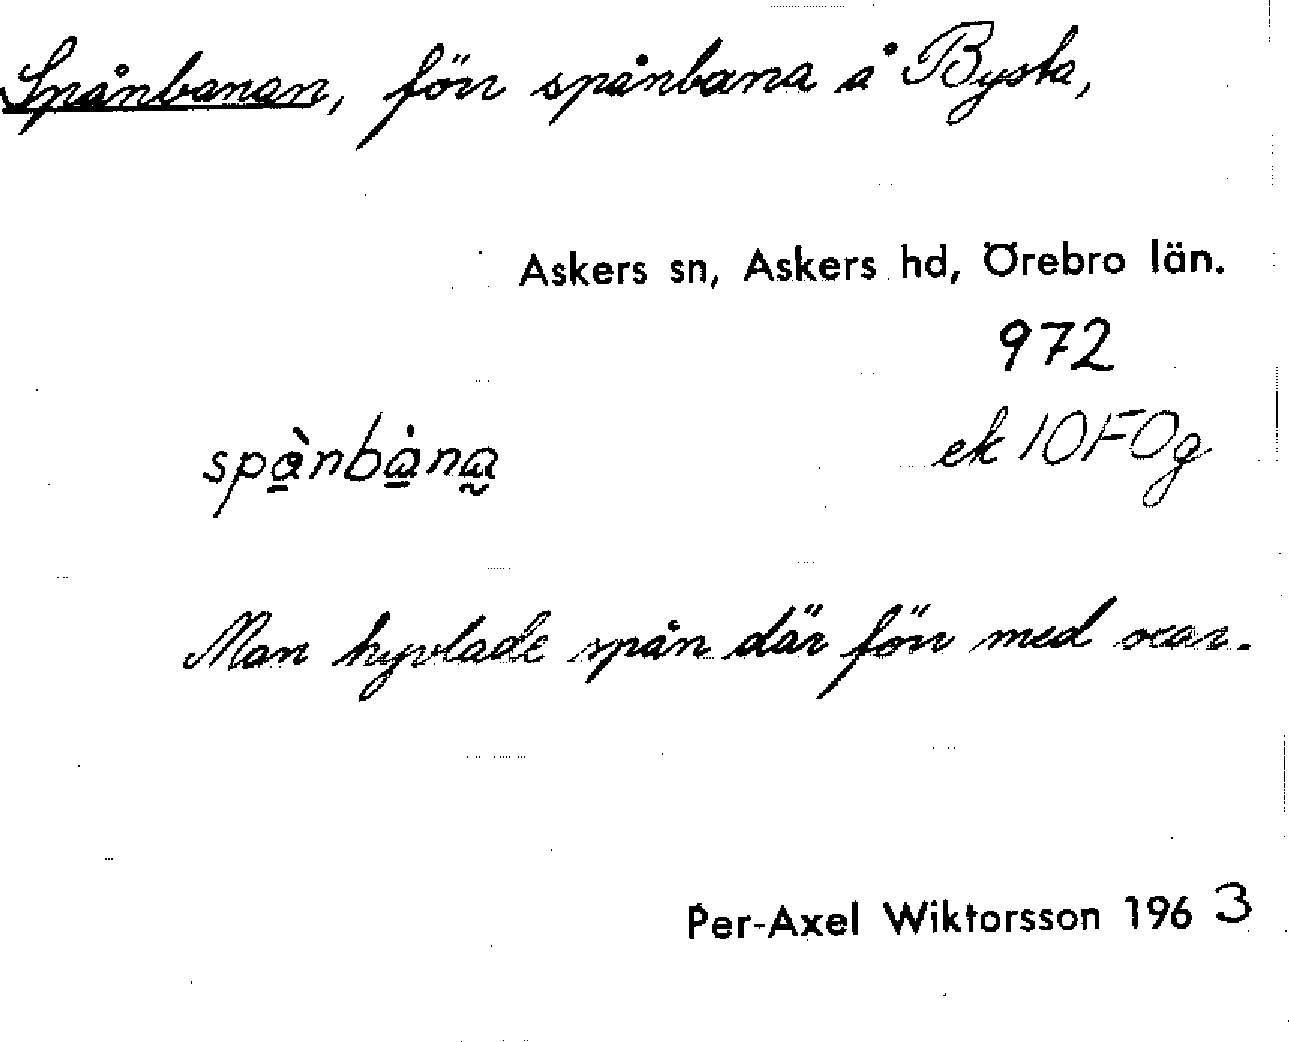 Spånbanan, förr spånbana å Bysta,
Askers sn, Askers hd, Örebro län.
972
spà̱nbȧ̱na̰
ek 10F0g
Man hyvlade spån där förr med oxar.
Per-Axel Wiktorsson 1963